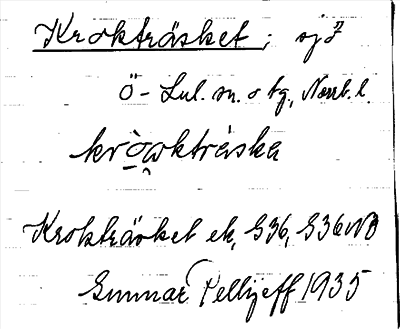 Krokträsket; sjö
Ö-Lul. sn. o tg., Norrb. l.
kròͅwkträska
Krokträsket ek, S36, S36NO
Gunnar Pellijeff 1935